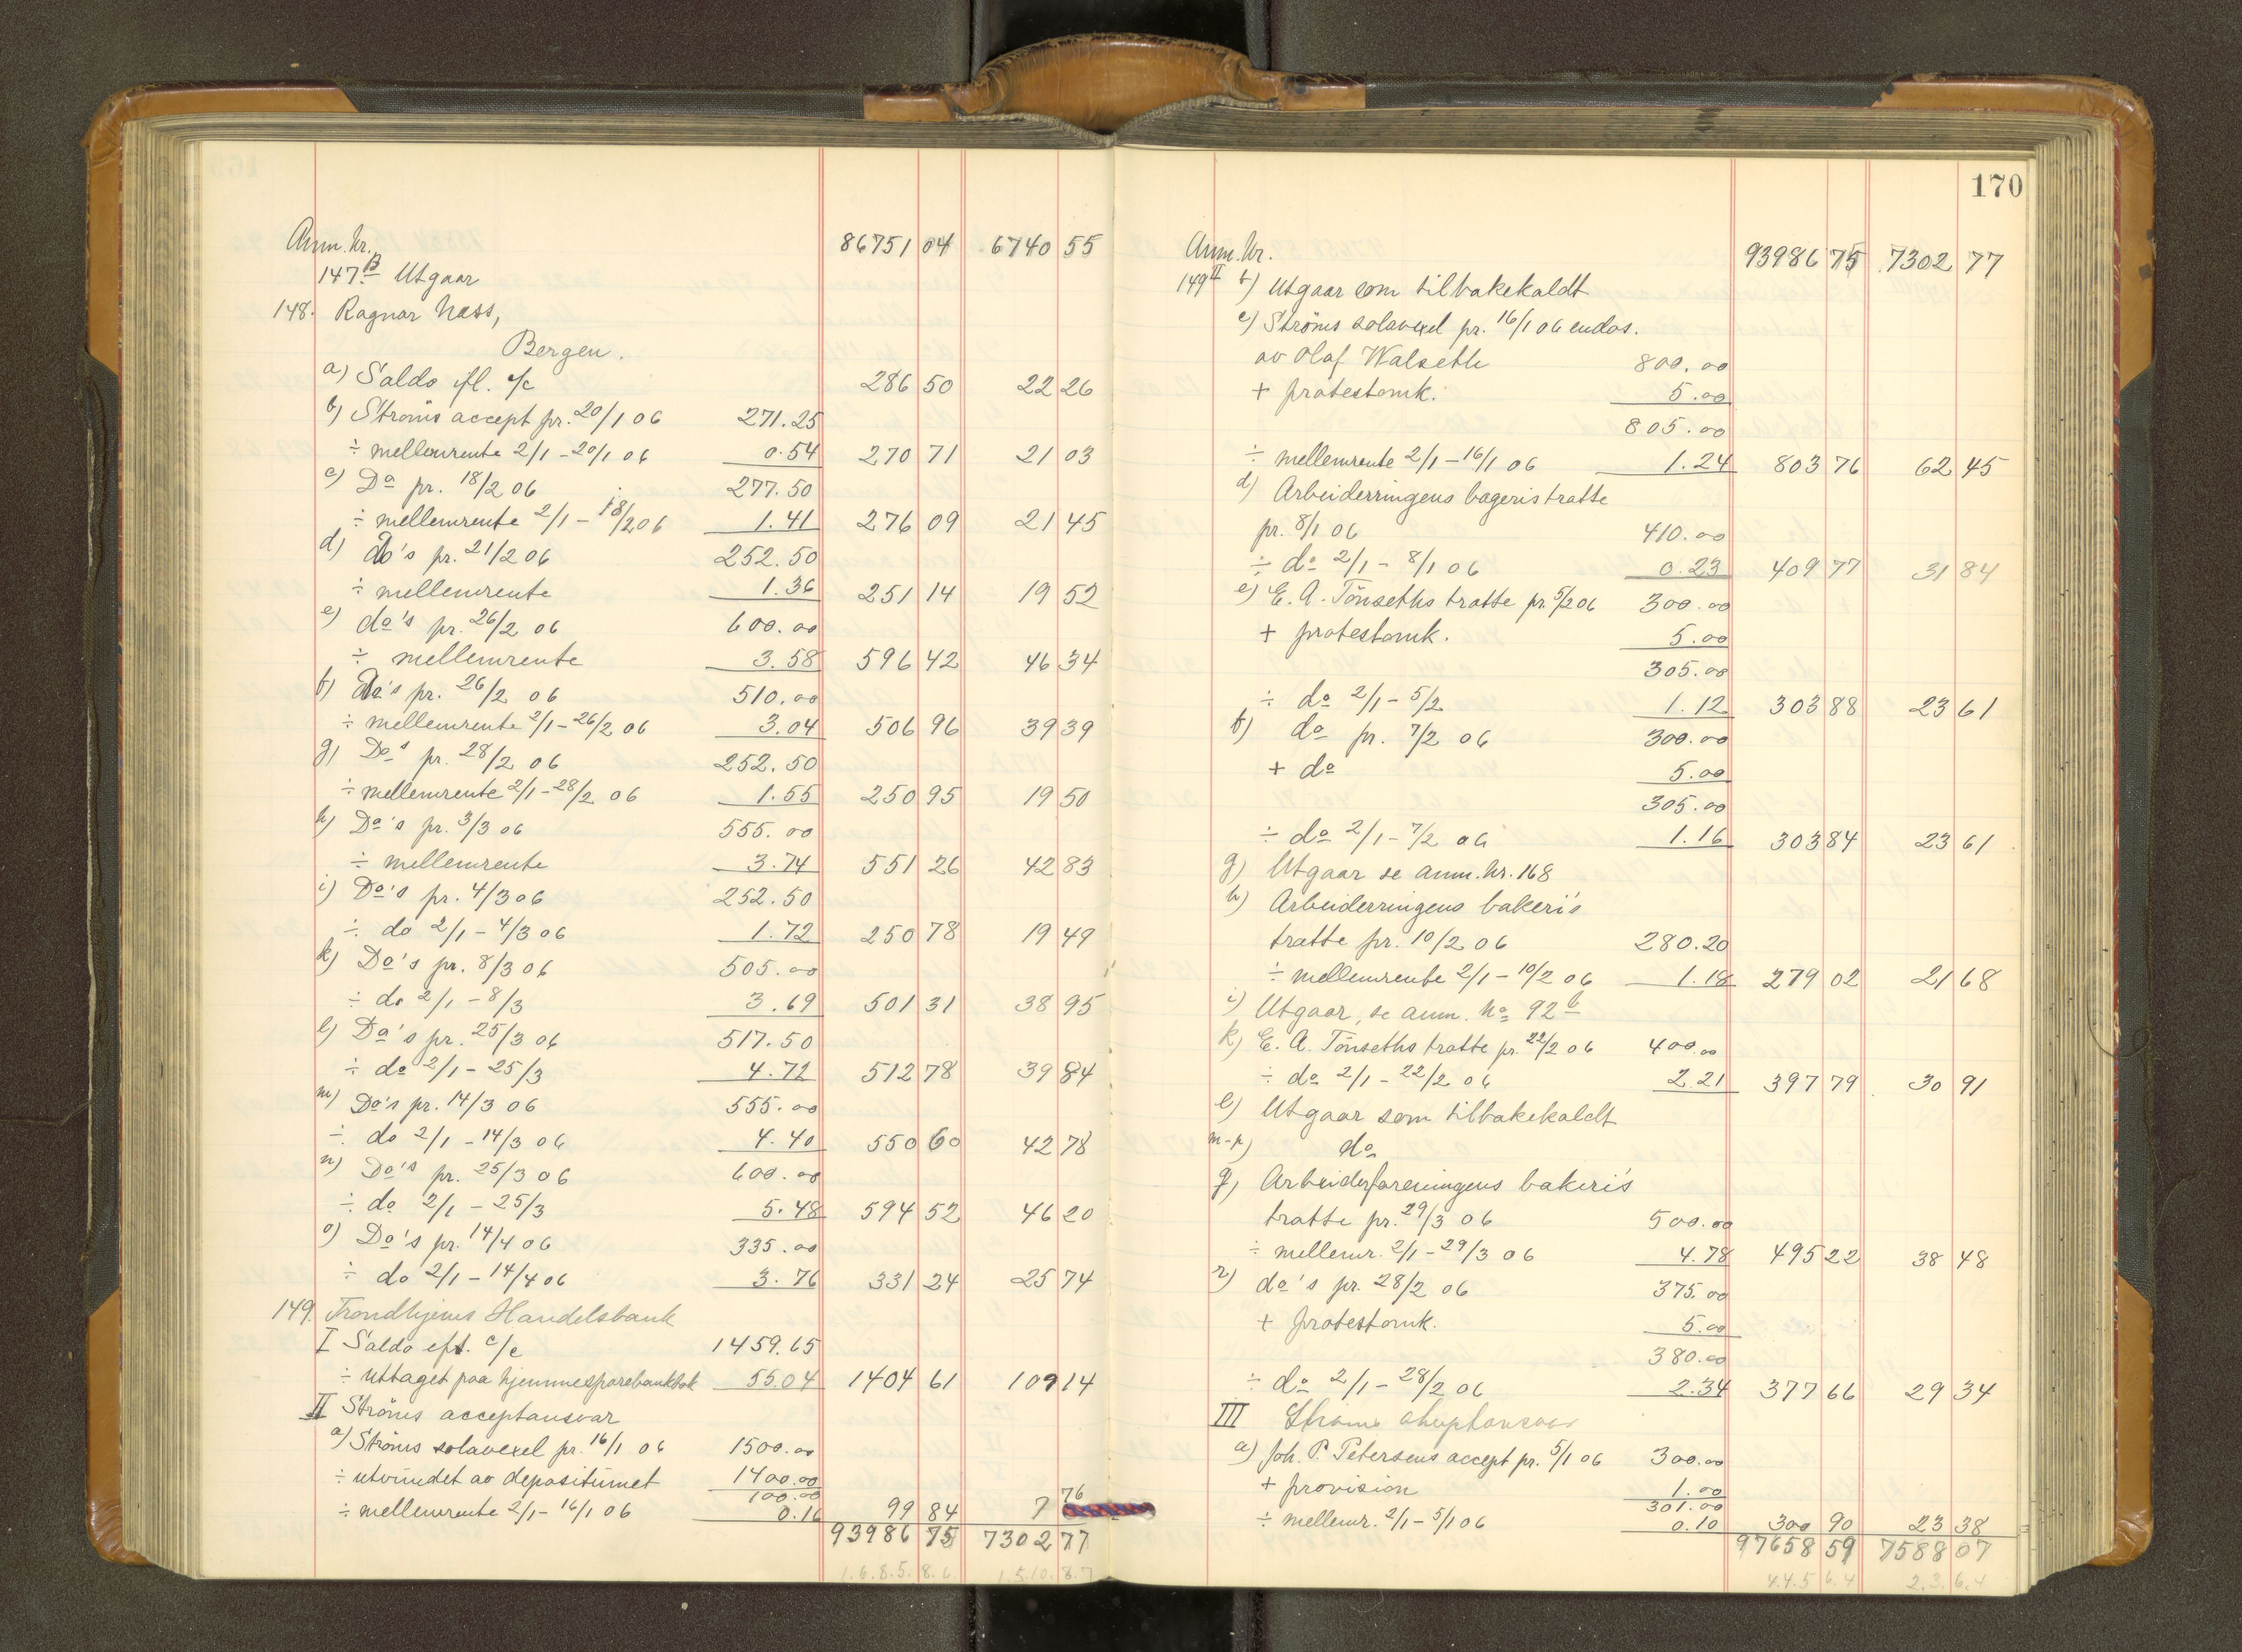 Anm. Nr. 86751 04 6740 55
147 B Utgaar
148. Ragnar Næss,
Bergen.
a) Saldo ifl. c/c 286 50 22 26
b) Ströms accept pr. 20/1 06 271.25
÷ mellemrente 2/1 - 20/1 06 0.54 270 71 21 03
c) Do pr. 18/2 06 277.50
÷ mellemrente 2/1 - 18/2 06 1.41 276 09 21 45
d) do's pr. 21/2 06 252.50
÷ mellemrente 1.36 251 14 19 52
e) do's pr. 26/2 06 600.00
÷ mellemrente 3.58 596 42 46 34
f) do's pr. 26/2 06 510.00
÷ mellemrente 2/1 - 26/2 06 3.04 506 96 39 39
g) Do's pr. 28/2 06 252.50
÷ mellemrente 2/1 - 28/2 06 1.55 250 95 19 50
h) Do's pr. 3/3 06 555.00
÷ mellemrente 3.74 551 26 42 83
i) Do's pr. 4/3 06 252.50
÷ do 2/1 - 4/3 06 1.72 250 78 19 49
k) Do's pr. 8/3 06 505.00
÷ do 2/1 - 8/3 3.69 501 31 38 95
l) Do's pr. 25/3 06 517.50
÷ do 2/1 - 25/3 4.72 512 78 39 84
m) Do's pr. 14/3 06 555.00
÷ do 2/1 - 14/3 06 4.40 550 60 42 78
n) Do's pr. 25/3 06 600.00
÷ do 2/1 - 25/3 5.48 594 52 46 20
o) Do's pr. 14/4 06 335.00
÷ do 2/1 - 14/4 06 3.76 331 24 25 74
149. Trondhjems Handelsbank
I Saldo eft. c/c 1459.65
÷ uttaget paa hjemmesparebankbok 55.04 1404 61 109 14
II Ströms acceptansvar
a) Ströms solavexel pr. 16/1 06 1500.00
÷ utvundet av depositumet 1400.00
100.00
÷ mellemrente 2/1 - 16/1 06 0.16 99 84 7 76
93986 75 7302 77
1.6.8.5. 8.6. 1.5.10. 8.7
170
Anm. Nr. 93986 75 7302 77
149 II b) Utgaar som tilbakekaldt
c) Ströms solavexel pr. 16/1 06 endos.
av Olaf Walseth 800.00
+ protestomk. 5.00
805.00
÷ mellemrente 2/1 - 16/1 06 1.24 803 76 62 45
d) Arbeiderringens bageris tratte
pr. 8/1 06 410.00
÷ do 2/1 - 8/1 06 0.23 409 77 31 84
e) E. A. Tönseths tratte pr. 5/2 06 300.00
+ protestomk. 5.00
305.00
÷ do 2/1 - 5/2 1.12 303 88 23 61
f) do pr. 7/2 06 300.00
+ do 5.00
305.00
÷ do 2/1 - 7/2 06 1.16 303 84 23 61
g) Utgaar se anm. Nr. 168
h) Arbeiderringens bakeri's
tratte pr. 10/2 06 280.20
÷ mellemrente 2/1 - 10/2 06 1.18 279 02 21 68
i) Utgaar, se anm. No 92 b
k) E. A. Tönseths tratte pr. 22/2 06 400.00
÷ do 2/1 - 22/2 06 2.21 397 79 30 91
l) Utgaar som tilbakekaldt
m-p) do
q) Arbeiderforeningens bakeri's
tratte pr. 29/3 06 500.00
÷ mellemr. 2/1 - 29/3 06 4.78 495 22 38 48
r) do's pr. 28/2 06 375.00
+ protestomk. 5.00
380.00
÷ do 2/1 - 28/2 06 2.34 377 66 29 34
III Ströms
a) Joh. P. Petersens accept pr. 5/1 06 300.00
+ provision 1.00
301.00
÷ mellemr. 2/1 - 5/1 06 0.10 300 90 23 38
97658 59 7588 07
4.4.5 6.4 2.3. 6.4